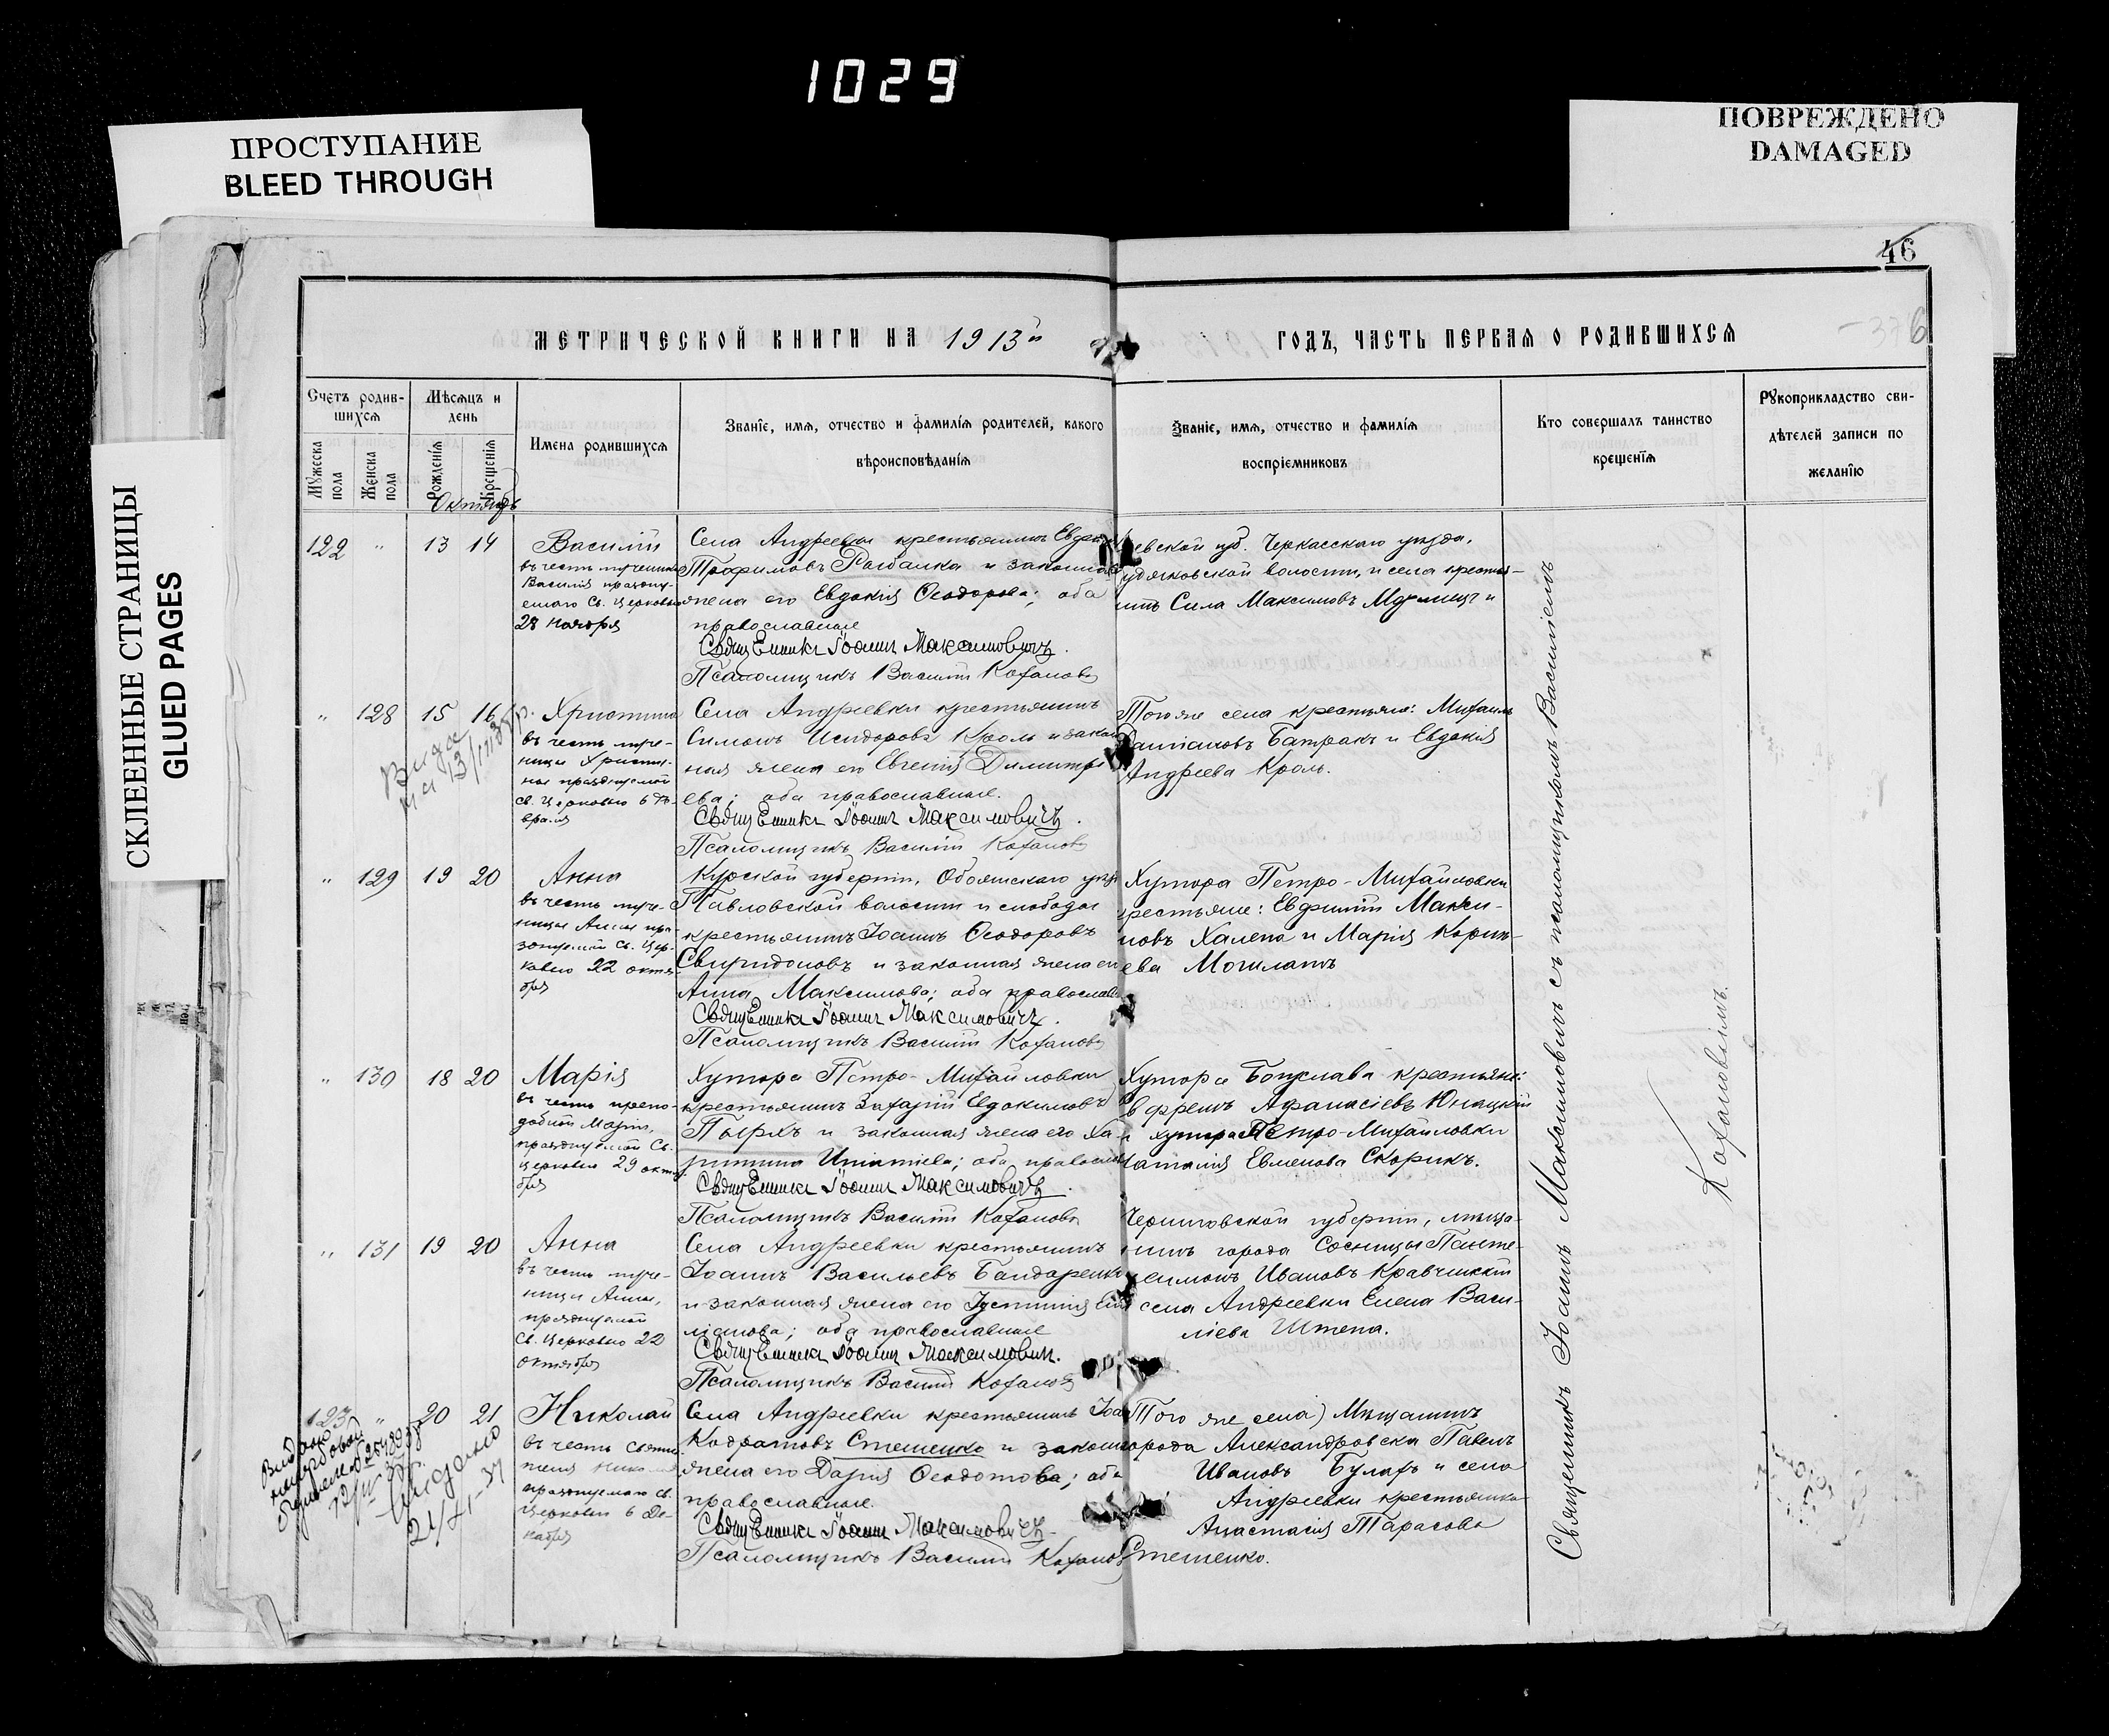 1029
ПРОСТУПАНИЕ
BLEED THROUGH
ПОВРЕЖДЕНО
DAMAGED
СКЛЕЕННЫЕ СТРАНИЦЫ
GLUED PAGES
46
376
МЕТРИЧЕСКОЙ КНИГИ НА 1913й ГОДЪ, ЧАСТЬ ПЕРВАЯ О РОДИВШИХСЯ
Счетъ родив-
шихся
Мѣсяцъ и
день
Мужеска
пола
Женска
пола
Рожденія
Крещенія
Имена родившихся
Званіе, имя, отчество и фамилія родителей, какого
вѣроисповѣданія
Званіе, имя, отчество и фамилія
воспріемниковъ
Кто совершалъ таинство
крещенія
Рукоприкладство сви-
дѣтелей записи по
желанію
Октябрь
122 " 13 14
Василій
въ честь мученика
Василія праздну-
емаго Св. Церковью
28 ноября
Села Андреевки крестьянинъ
Трофимовъ Рыбалка и законная
жена его Евдокія Ѳеодорова; оба
православные
Священникъ Іоаннъ Максимовичъ.
Псаломщикъ Василій Кохановъ
Черкасскаго уѣзда,
волости, и села крестья-
нинъ Сила Максимовъ
" 128 15 16
Христина
въ честь муче-
ницы Христи-
ны празднуемой
св. Церковью 6 фе-
враля
Села Андреевки крестьянинъ
Симонъ Исидоровъ Кроль и закон
ная жена его Евгенія Димитрі
ева; оба православные.
Священникъ Іоаннъ Максимовичъ.
Псаломщикъ Василій Кохановъ
Того же села крестьяне: Михаилъ
Батракъ и Евдокія
Андреева Кроль.
" 129 19 20
Анна
въ честь муче-
ницы Анны пра-
зднуемой Св. Цер-
ковью 22 октя-
бря
Курской губерніи, Обоянскаго уѣзд
Павловской волости и слободы
крестьянинъ Іоаннъ Ѳеодоровъ
Свиридоновъ и законная жена его
Анна Максимова; оба православн
Священникъ Іоаннъ Максимовичъ.
Псаломщикъ Василій Кохановъ
Хутора Петро-Михайловки
крестьяне: Евфимій Макси-
мовъ Халепа и Марія Корни-
ева
" 130 18 20
Марія
въ честь препо-
добной Маріи,
празднуемой Св.
Церковью 29 октя
бря
Хутора Петро-Михайловки
крестьянинъ Захарій Евдокимовъ
и законная жена его Ха-
ритина Игнатіева; оба православн
Священникъ Іоаннъ Максимовичъ.
Псаломщикъ Василій Кохановъ
Хутора Богуслава крестьяне:
Ефремъ Аѳанасіевъ Юнацкій
и хутора Петро-Михайловки
Наталія Евменова Скорикъ.
" 131 19 20
Анна
въ честь муче-
ницы Анны,
празднуемой
Св. Церковью 22
октября
Села Андреевки крестьянинъ
Іоаннъ Васильевъ Бандаренко
и законная жена его Іустинія Еми
ліанова; оба православные
Священникъ Іоаннъ Максимович.
Псаломщикъ Василій Кохановъ
Черниговской губерніи, мѣща-
нинъ города Сосницы Панте-
леимонъ Ивановъ Кравчинскій
села Андреевки Елена Васи-
ліева Штепа.
123 " 20 21
Николай
въ честь Святи-
теля Николая
празднуемаго св.
Церковью 6 Де-
кабря
Села Андреевки крестьянинъ Іоан
Кодратовъ Стешенко и законная
жена его Дарія Ѳеодотова; оба
православные.
Священникъ Іоаннъ Максимовичъ
Псаломщикъ Василій Кохановъ
Того же села) Мѣщанинъ
города Александровска Павелъ
Ивановъ Булахъ и села
Андреевки крестьянка
Анастасія Тарасова
Стешенко.
Священникъ Іоаннъ Максимовичъ съ псаломщикомъ Василіемъ
Кохановымъ.